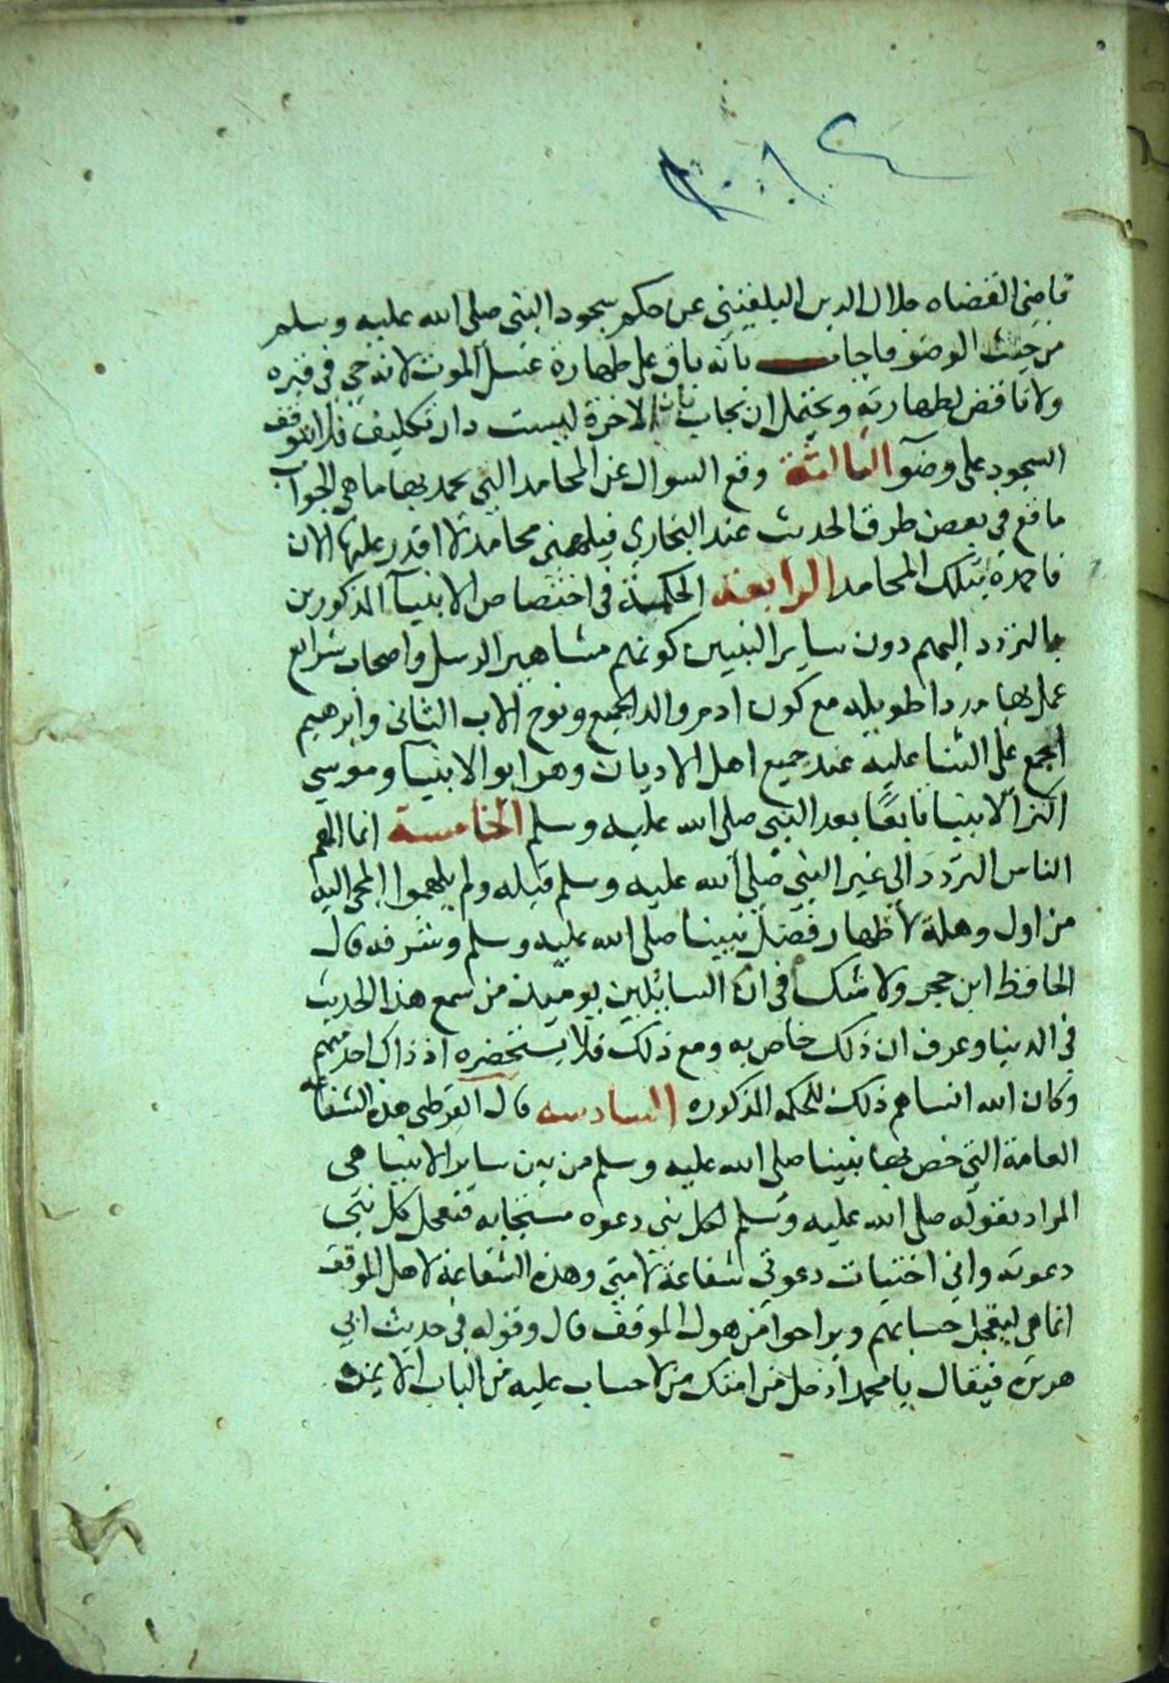 قاضى القضاه جلال الدين البلقينى عن حكم سجود النبى صلى الله عليه وسلم
من حيث الوضو فاجاب بانه باق على طهارة غسل الموت لانه حي فى قبره
ولا ناقض لطهارته ويحتمل ان يجاب بان الاخرة ليست دار تكليف فلا يتوقف
السجود على وضو الثالثة وقع السوال عن المحامد التي يحمد بها ما هي الجواب
ما وقع في بعض طرق الحديث عند البخاري فيلهمني محامد لا اقدر عليها الان
فاحمده بتلك المحامد الرابعة الحكمة فى اختصاص الانبيآ المذكورين
بالتردد اليهم دون ساير النبيين كونهم مشاهير الرسل واصحاب شرايع
عمل بها مددا طويله مع كون ادم والد الجميع ونوح الاب الثانى وابرهيم
المجمع على الثنا عليه عند جميع اهل الاديان وهو ابو الانبيا وموسى
اكثر الانبيا تابعًا بعد النبي صلى الله عليه وسلم الخامسة انما الهم
الناس التردد الي غير النبي صلى الله عليه وسلم قبله ولم يلهموا المجى اليه
من اول وهلة لاظهار فضل نبينا صلى الله عليه وسلم وشرفه قال
الحافظ ابن حجر ولا شك فى ان السائلين يوميذ من سمع هذا الحديث
في الدنيا وعرف ان ذلك خاص به ومع ذلك فلا يستحضره اذ ذاك احد منهم
وكان الله انساهم ذلك للحكمه المذكوره السادسه قال القرطبى هذه الشفاعه
العامة التي خص بها نبينا صلى الله عليه وسلم من بين ساير الانبيا هى
المراد بقوله صلى الله عليه وسلم لكل نبي دعوه مستجابه فتعجل كل نبى
دعوته واني اختبات دعوتي شفاعة لامتي وهذه الشفاعة لاهل الموقف
انما هى ليعجل حسابهم ويراحوا من هول الموقف قال وقوله فى حديث ابي
هريرة فيقال يا محمد ادخل من امتك من لا حساب عليه من الباب الايمن